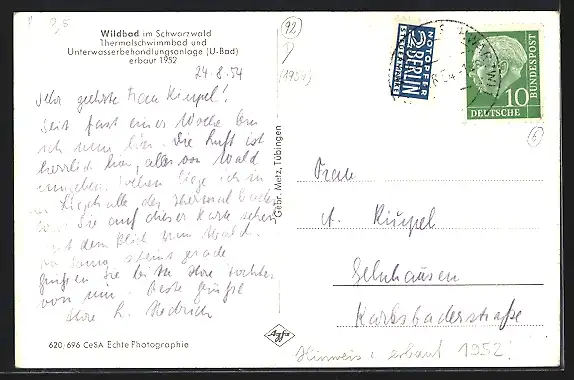 Wildbad im Schwarzwald
Thermalschwimmbad und
Unterwasserbehandlungsanlage (U-Bad)
erbaut 1952
24.8.54
Sehr geehrte Frau Kimpel!
Seit fast einer Woche bin
ich nun hier. Die Luft ist
herrlich hier, alles von Wald
umgeben. liege ich in
Liegehalle des Thermalbades
die Sie auf dieser Karte sehen
mit dem Blick zum Wald.
scheint gerade.
Grüßen Sie bitte Ihre Tochter
von mir. Beste Grüße
Ihre L. Hedrich
620/696 CeSA Echte Photographie
Gebr. Metz, Tübingen
Agfa
92
(1954)
NOTOPFER
2 BERLIN
STEUERMARKE
10
DEUTSCHE
BUNDESPOST
6
Frau
A. Kimpel
Gelnhausen
Karlsbaderstraße
Hinweis: erbaut 1952!